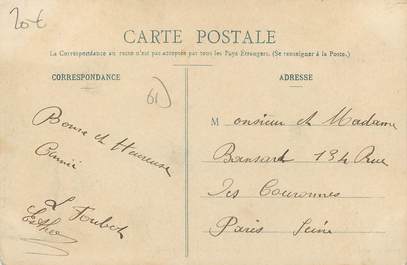 20€
CARTE POSTALE
La Correspondance au recto n'est pas acceptée par tous les Pays Étrangers. (Se renseigner à la Poste.)
CORRESPONDANCE
ADRESSE
61
Bonne et Heureuse
Année
L Foubet
Esther
Monsieur et Madame
Bansard 134 Rue
des Couronnes
Paris Seine